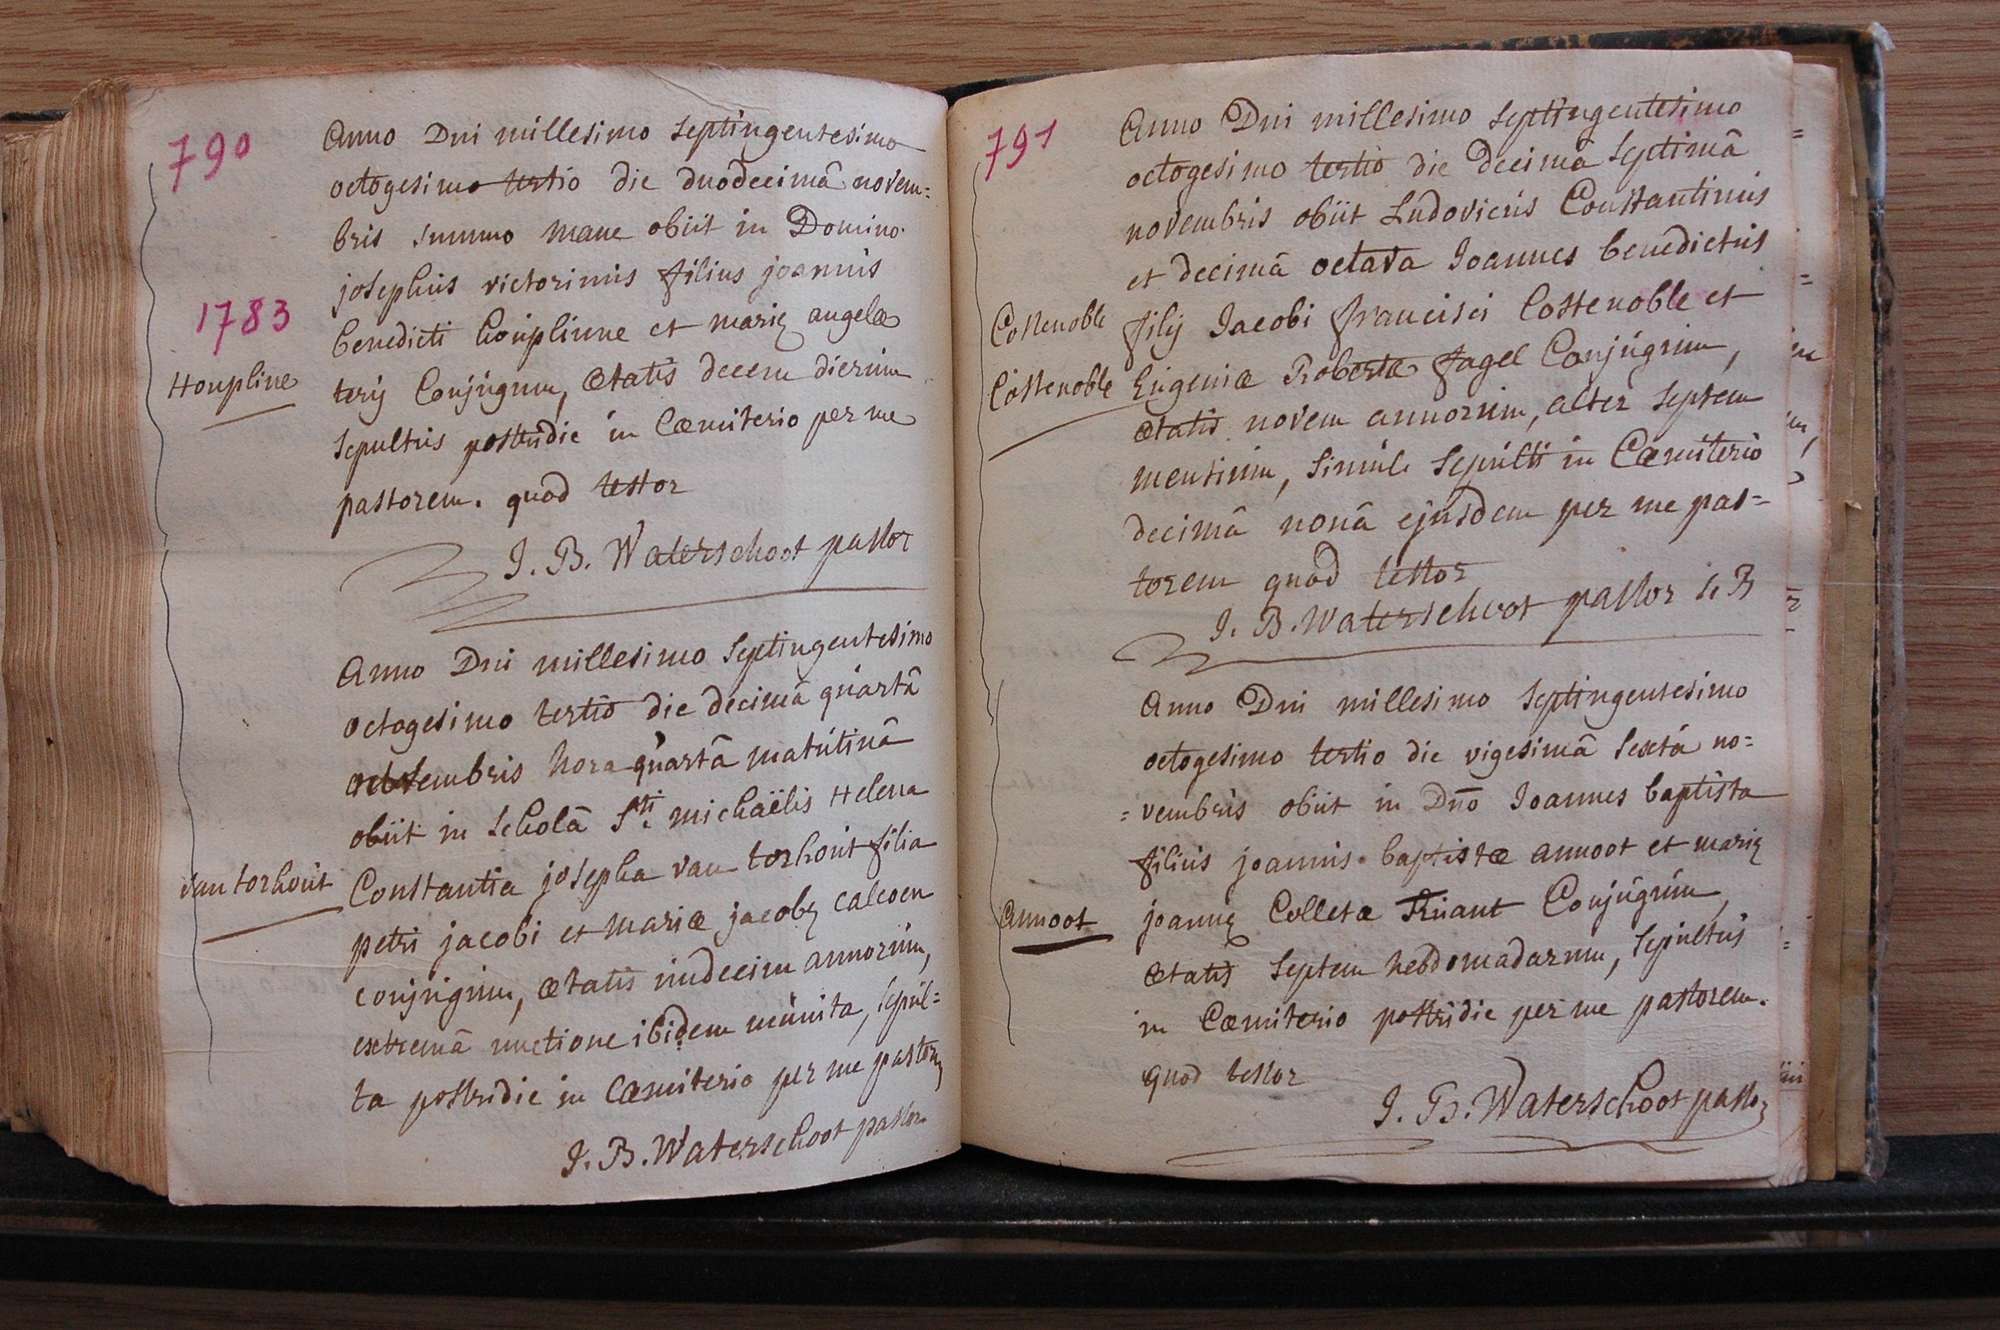 790
1783
Anno Dni millesimo septingentesimo
octogesimo tertio die duodecimâ novem=
bris summo mane obiit in Domino
josephus victorinus filius joannis
benedicti houplinne et marię angelæ
terij Conjugum, ætatis decem dierum
Houpline
sepultus postridie in Cœmiterio per me
pastorem. quod testor
J. B. Waterschoot pastor
Anno Dni millesimo septingentesimo
octogesimo tertio die decimâ quartâ
novembris hora quartâ matutinâ
obiit in scholâ Sti michaëlis Helena
Constantia josepha van torhout filia
van torhout
petri jacobi et mariæ jacobę calcoen
conjugum, ætatis undecim annorum,
extremâ unctione ibidem munita, sepul=
ta postridie in Cœmiterio per me pastorem
J. B. Waterschoot pastor
791
Anno Dni millesimo septingentesimo
octogesimo tertio die decimâ septimâ
novembris obiit Ludovicus Constantinus
et decimâ octava Joannes benedictus
Costenoble
filij Jacobi francisci Costenoble et
Costenoble
Eugeniæ Robertæ fagel Conjugum,
ætatis novem annorum, alter septem
mensium, simul sepulti in Cœmiterio
decimâ nonâ ejusdem per me pas=
torem quod testor
J. B. Waterschoot pastor
Anno Dni millesimo septingentesimo
octogesimo tertio die vigesimâ sextâ no=
=vembris obiit in Dno Joannes baptista
filius joannis baptistæ annoot et marię
Annoot
joannę Colletæ Conjugum,
ætatis septem hebdomadarum, sepultus
in Cœmiterio postridie per me pastorem.
quod testor
J. B. Waterschoot pastor